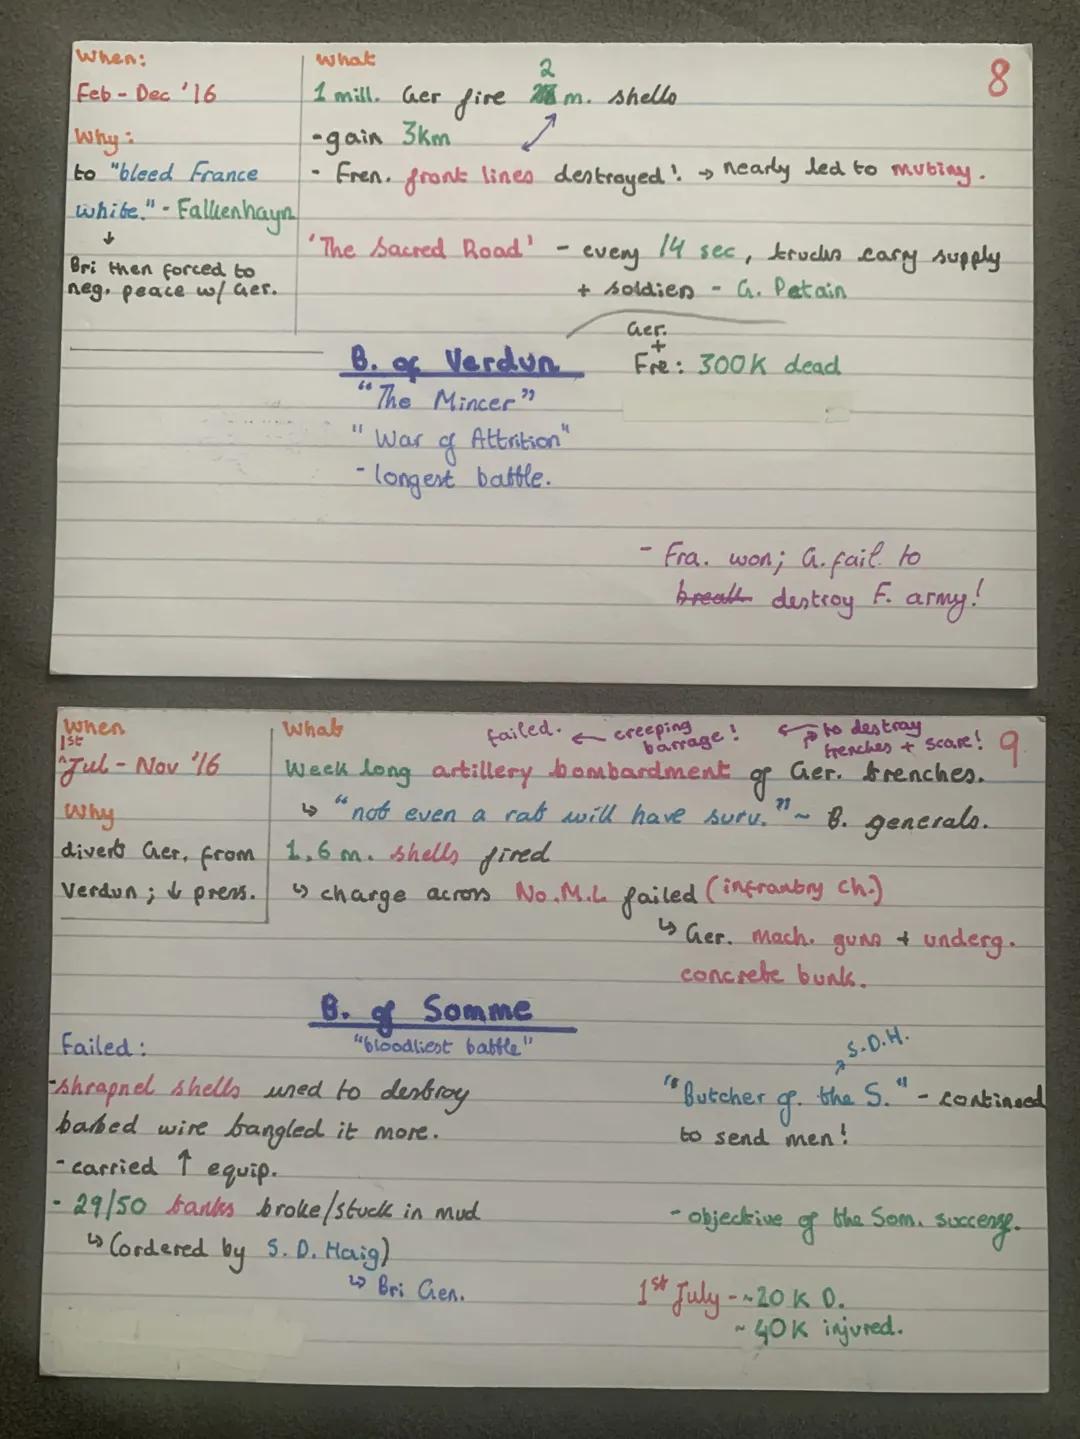 8
When:
Feb - Dec '16
Why:
to "bleed France
white." - Falkenhayn
↓
Bri then forced to
neg. peace w/ Ger.
What
2
1 mill. Ger fire m. shells
- gain 3km
- Fren. front lines destroyed! → nearly led to mutiny.
'The Sacred Road' - every 14 sec, trucks cary supply
+ soldiers - G. Petain
Ger.
+
Fre: 300K dead
B. of Verdun
"The Mincer"
"War of Attrition"
- longest battle.
- Fra. won; G. fail. to
break destroy F. army!
9
When
1st
^Jul - Nov '16
Why
divert Ger. from
Verdun; ↓ press.
What
failed. ← creeping
barrage!
to destray
trenches + scare!
Week long artillery bombardment of Ger. trenches.
↳ "not even a rat will have surv." ~ B. generals.
1,6 m. shells fired
↳ charge across No.M.L failed (infrantry ch.)
↳ Ger. mach. guns + underg.
concrete bunk.
B. of Somme
"bloodliest battle"
Failed:
- shrapnel shells used to destroy
barbed wire tangled it more.
- carried ↑ equip.
- 29/50 tanks broke/stuck in mud
↳ (ordered by S. D. Haig)
↳ Bri Gen.
S.D.H.
"Butcher of. the S." - continued
to send men!
- objective of the Som. success.
1st July - ~20K D.
~ 40K injured.